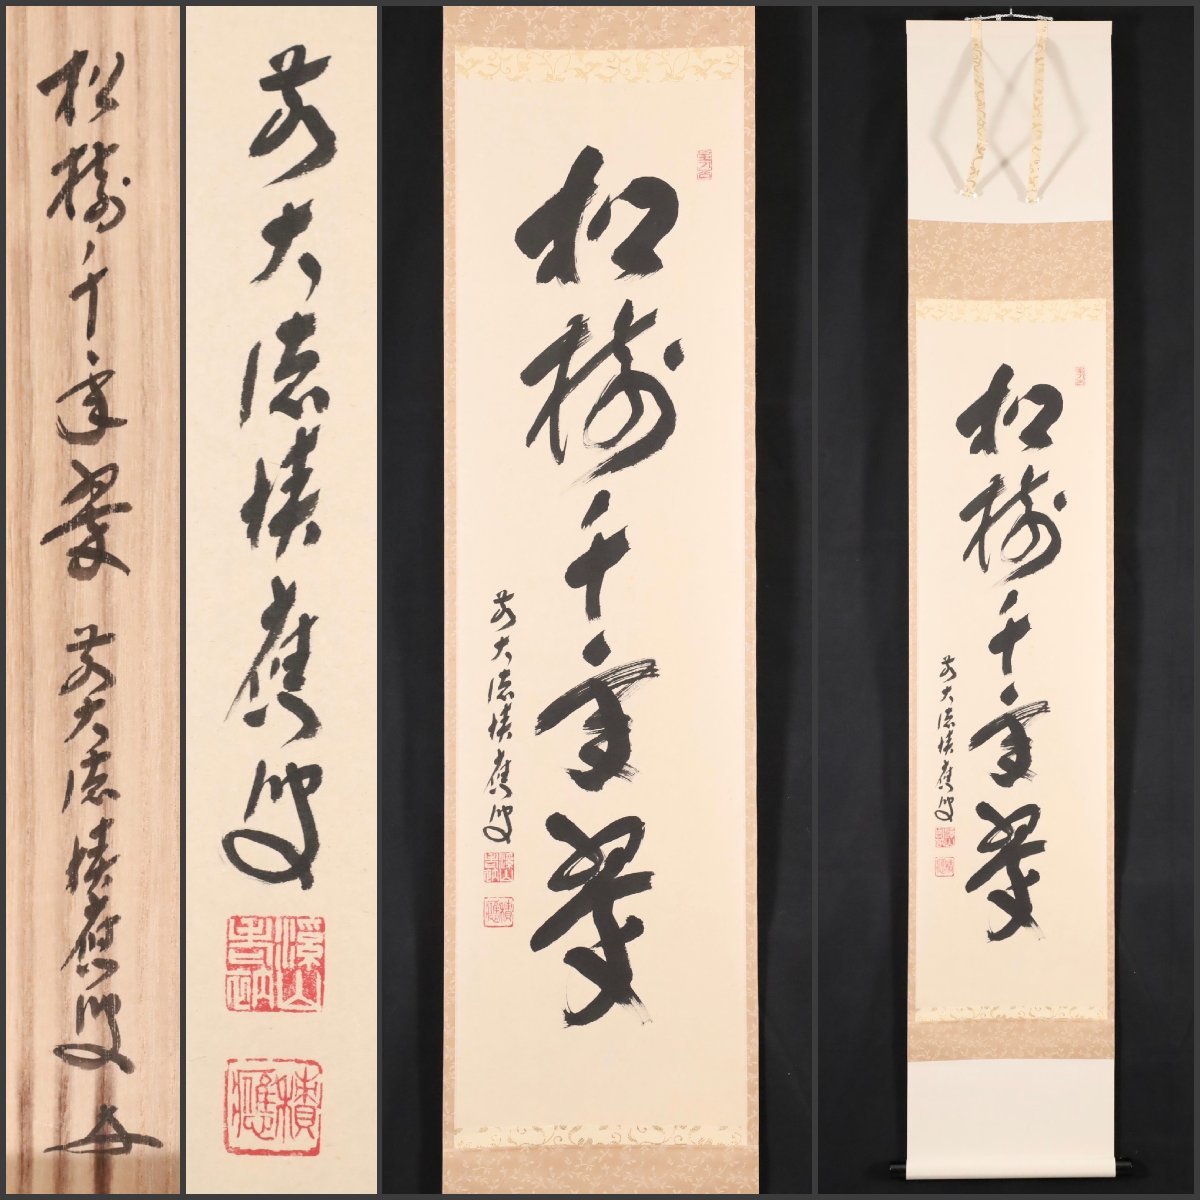 松樹千年翠 前大徳積應叟
前大徳積應叟
溪山
積應
松樹千年翠
前大徳積應叟
松樹千年翠
前大徳積應叟